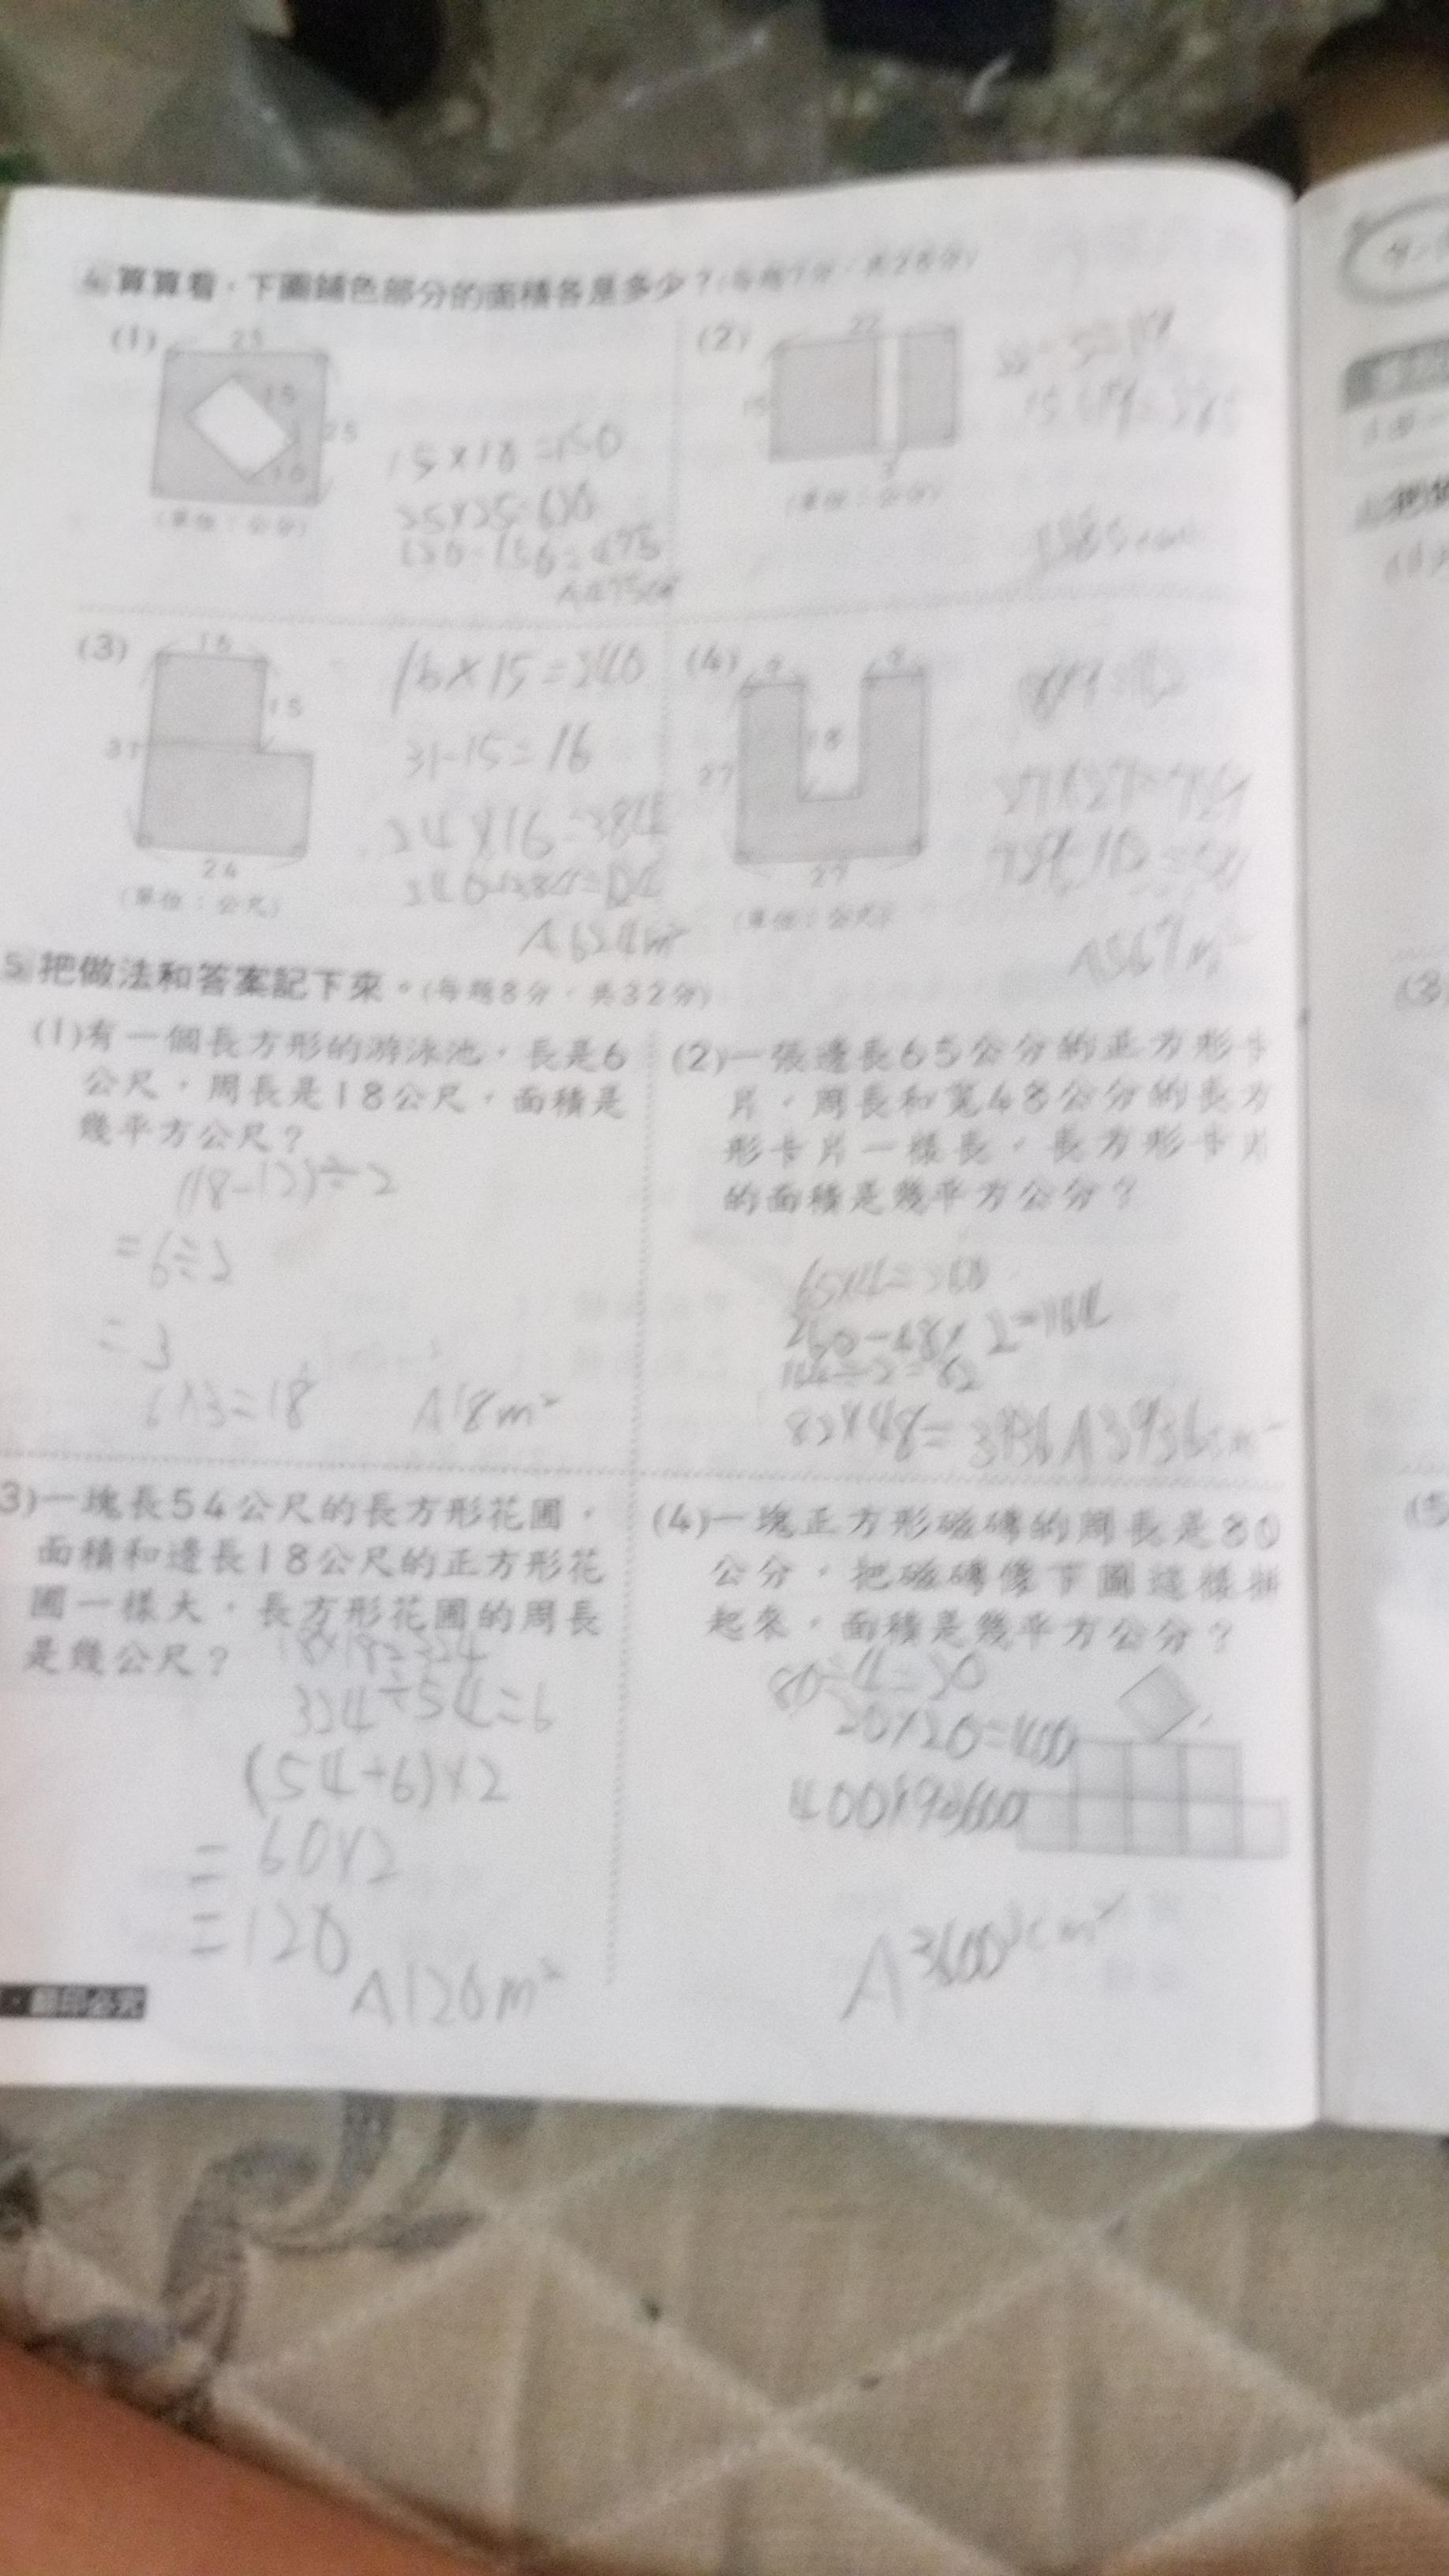 算算看,下圖鋪色部分的面積各是多少?(每題7分,共28分)
(1)
25
15
25
10
(單位:公分)
15×10=150
A475
(2)
22
15
(單位:公分)
(3)
16
15
31
24
(單位:公尺)
16×15=240
31-15=16
24×16=384
A 624m²
(4)
9
9
18
27
27
(單位:公尺)
A567m²
5 把做法和答案記下來。(每題8分,共32分)
(1)有一個長方形的游泳池,長是6
公尺,周長是18公尺,面積是
幾平方公尺?
(18-12)÷2
=6÷2
=3
6×3=18 A18m²
(2)一張邊長65公分的正方形卡
片,周長和寬48公分的長方
形卡片一樣長,長方形卡片
的面積是幾平方公分?
65×4=260
260-48×2=164
164÷2=82
82×48=3936 A3936cm²
3)一塊長54公尺的長方形花圃,
面積和邊長18公尺的正方形花
圃一樣大,長方形花圃的周長
是幾公尺?
18×18=324
324÷54=6
(54+6)×2
=60×2
=120
A120m²
(4)一塊正方形磁磚的周長是80
公分,把磁磚像下圖這樣拼
起來,面積是幾平方公分?
80÷4=20
20×20=400
400×9=3600
A3600cm²
翻印必究
(3)
(5